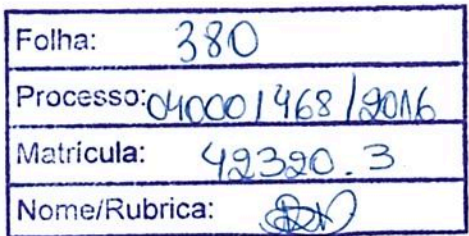 Folha: 380
Processo: 040001468/2016
Matrícula: 42320.3
Nome/Rubrica: